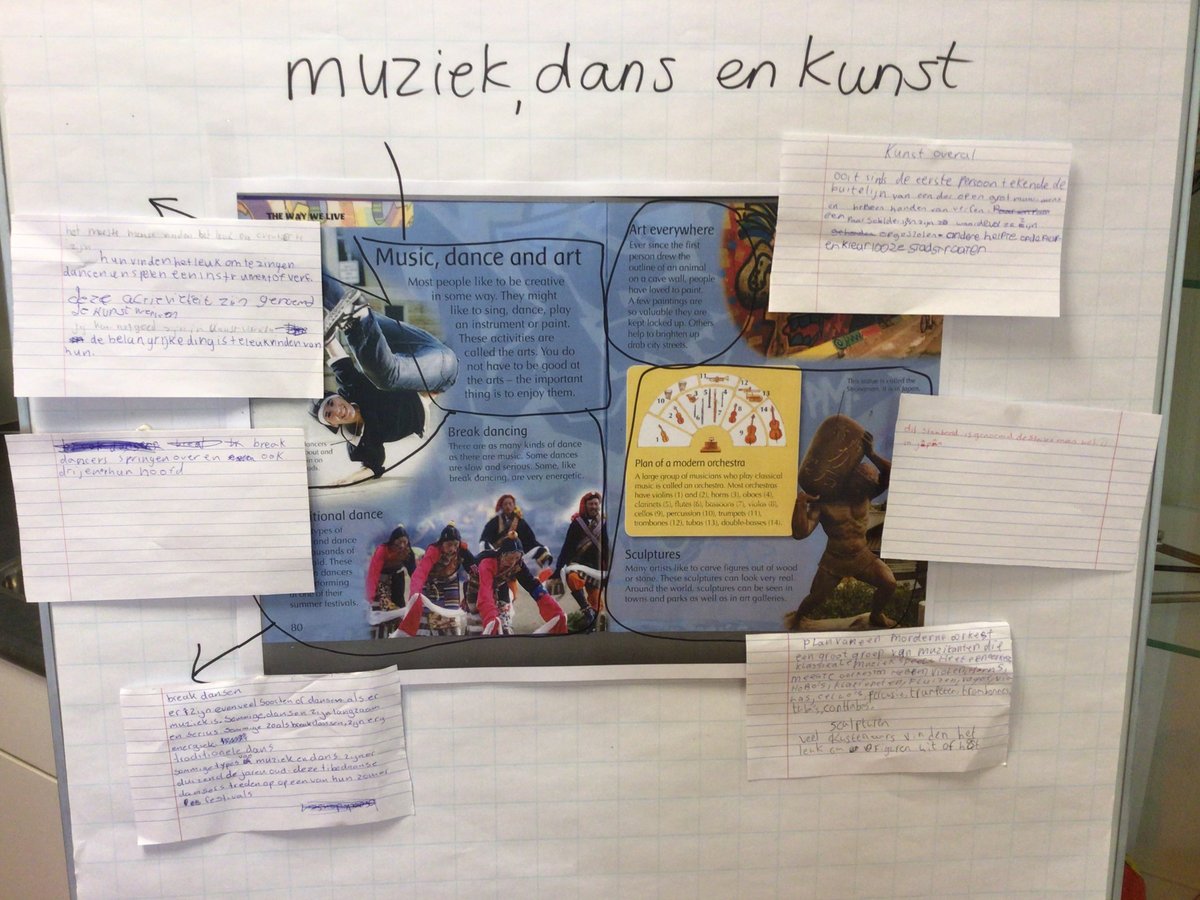 muziek, dans en kunst
THE WAY WE LIVE
Music, dance and art
Most people like to be creative
in some way. They might
like to sing, dance, play
an instrument or paint.
These activities are
called the arts. You do
not have to be good at
the arts – the important
thing is to enjoy them.
Break dancing
There are as many kinds of dance
as there are music. Some dances
are slow and serious. Some, like
break dancing, are very energetic.
dance
types of
and dance
old. These
dancers
of their
summer festivals.
80
Art everywhere
Ever since the first
person drew the
outline of an animal
on a cave wall, people
have loved to paint.
A few paintings are
so valuable they are
kept locked up. Others
help to brighten up
drab city streets.
11
10
12
13
14
Plan of a modern orchestra
A large group of musicians who play classical
music is called an orchestra. Most orchestras
have violins (1) and (2), horns (3), oboes (4),
clarinets (5), flutes (6), bassoons (7), violas (8),
cellos (9), percussion (10), trumpets (11),
trombones (12), tubas (13), double-basses (14).
This statue is called the
Stoneman. It is in Japan.
Sculptures
Many artists like to carve figures out of wood
or stone. These sculptures can look very real.
Around the world, sculptures can be seen in
towns and parks as well as in art galleries.
het meeste mense vinden het leuk om
zijn
hun vinden het leuk om te zingen
dancen en spelen een instrument of verf.
deze activiteit zijn genoemd
de kunst
de belangrijke ding is te leuk vinden van
hun.
break
dancers springen over en ook
hun hoofd
break dansen
er zijn evenveel soorten of dansen als er
muziek is. sommige dansen zijn langzaam
en serius. sommige zoals breakdansen, zijn erg
energiek
traditionele dans
sommige types muziek en dans zijn er
duizend de jaren oud. deze
dansers treden op op een van hun zomer
festivals
Kunst overal
ooit sinds de eerste persoon tekende de
buitelijn van een
en hebben handen van verfen.
een
opgesloten. andere helfte
en kleurlooze stadstraaten
dit standbeeld is genoemd de
in
plan van een morderne orkest
een groot groep van muzikanten die
klassieke muziek
meeste orkesten hebben violen, horns,
HoBo's,
trombones,
tuba's,
sculpturen
veel kustenaars vinden het
leuk om figuren uit of hout